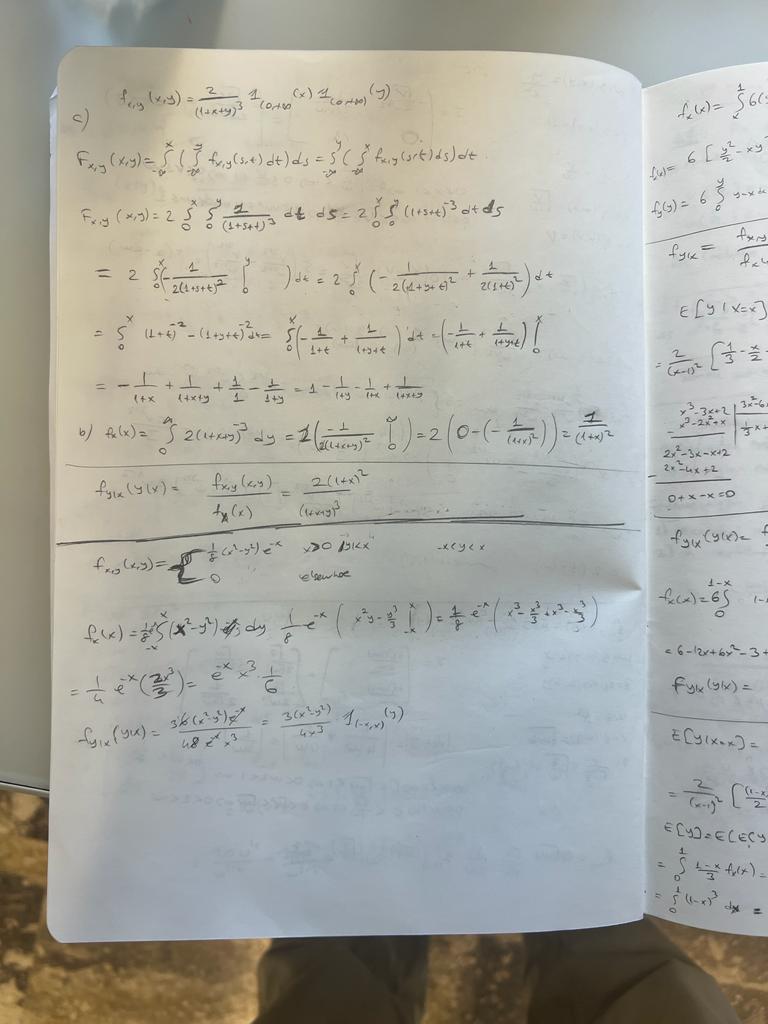 f_{x,y}(x,y) = 2/(1+x+y)^3 1_{(0,+∞)}(x) 1_{(0,+∞)}(y)
c)
F_{x,y}(x,y) = ∫_{-∞}^{x} ( ∫_{-∞}^{y} f_{x,y}(s,t) dt) ds = ∫_{-∞}^{y} ( ∫_{-∞}^{x} f_{x,y}(s,t) ds) dt
F_{x,y}(x,y) = 2 ∫_0^x ∫_0^y 1/(1+s+t)^3 dt ds = 2 ∫_0^x ∫_0^y (1+s+t)^{-3} dt ds
= 2 ∫_0^x (- 1/(2(1+s+t)^2) |_0^y ) dt = 2 ∫_0^x (- 1/(2(1+y+t)^2) + 1/(2(1+t)^2) ) dt
= ∫_0^x (1+t)^{-2} - (1+y+t)^{-2} dt = ∫_0^x (- 1/(1+t) + 1/(1+y+t) ) dt = (- 1/(1+t) + 1/(1+y+t) ) |_0^x
= - 1/(1+x) + 1/(1+x+y) + 1/1 - 1/(1+y) = 1 - 1/(1+y) - 1/(1+x) + 1/(1+x+y)
b) f_x(x) = ∫_0 2(1+x+y)^{-3} dy = 2( -1/(2(1+x+y)^2) |_0 ) = 2 (0 - (- 1/(1+x)^2 )) = 1/(1+x)^2
f_{y|x}(y|x) = f_{x,y}(x,y)/f_x(x) = 2(1+x)^2/(1+x+y)^3
f_{x,y}(x,y) = { 1/8 (x^2-y^2) e^{-x} x>0 |y|<x -x<y<x
0 elsewhere
f_x(x) = 1/8 ∫_{-x}^{x} (x^2-y^2) dy 1/8 e^{-x} ( x^2y - y^3/3 |_{-x}^{x} ) = 1/8 e^{-x} ( x^3 - x^3/3 + x^3 - x^3/3 )
= 1/4 e^{-x} (2x^3/3) = e^{-x} x^3 · 1/6
f_{y|x}(y|x) = 36(x^2-y^2)e^{-x}/48 e^{-x} x^3 = 3(x^2-y^2)/4x^3 1_{(-x,x)}(y)
f_x(x) = ∫_x^1 6(y
f_x(x) = 6 [ y^2/2 - xy
f_y(y) = 6 ∫_0^y y-x
f_{y|x} =
E[Y|X=x]
= 2/(x-1)^2 [ 1/3 - x/2
x^3-3x+2
x^3-2x^2+x
2x^2-3x-x+2
2x^2-4x+2
0+x-x=0
f_{y|x}(y|x) =
f_x(x) = 6 ∫_0^{1-x} 1-
= 6-12x+6x^2-3+
f_{y|x}(y|x) =
E[Y|X=x] =
= 2/(x-1)^2 [
E[Y] = E[E[Y
= ∫_0^1 (1-x)/3 f_x(x) =
= ∫_0^1 (1-x)^3 dx =